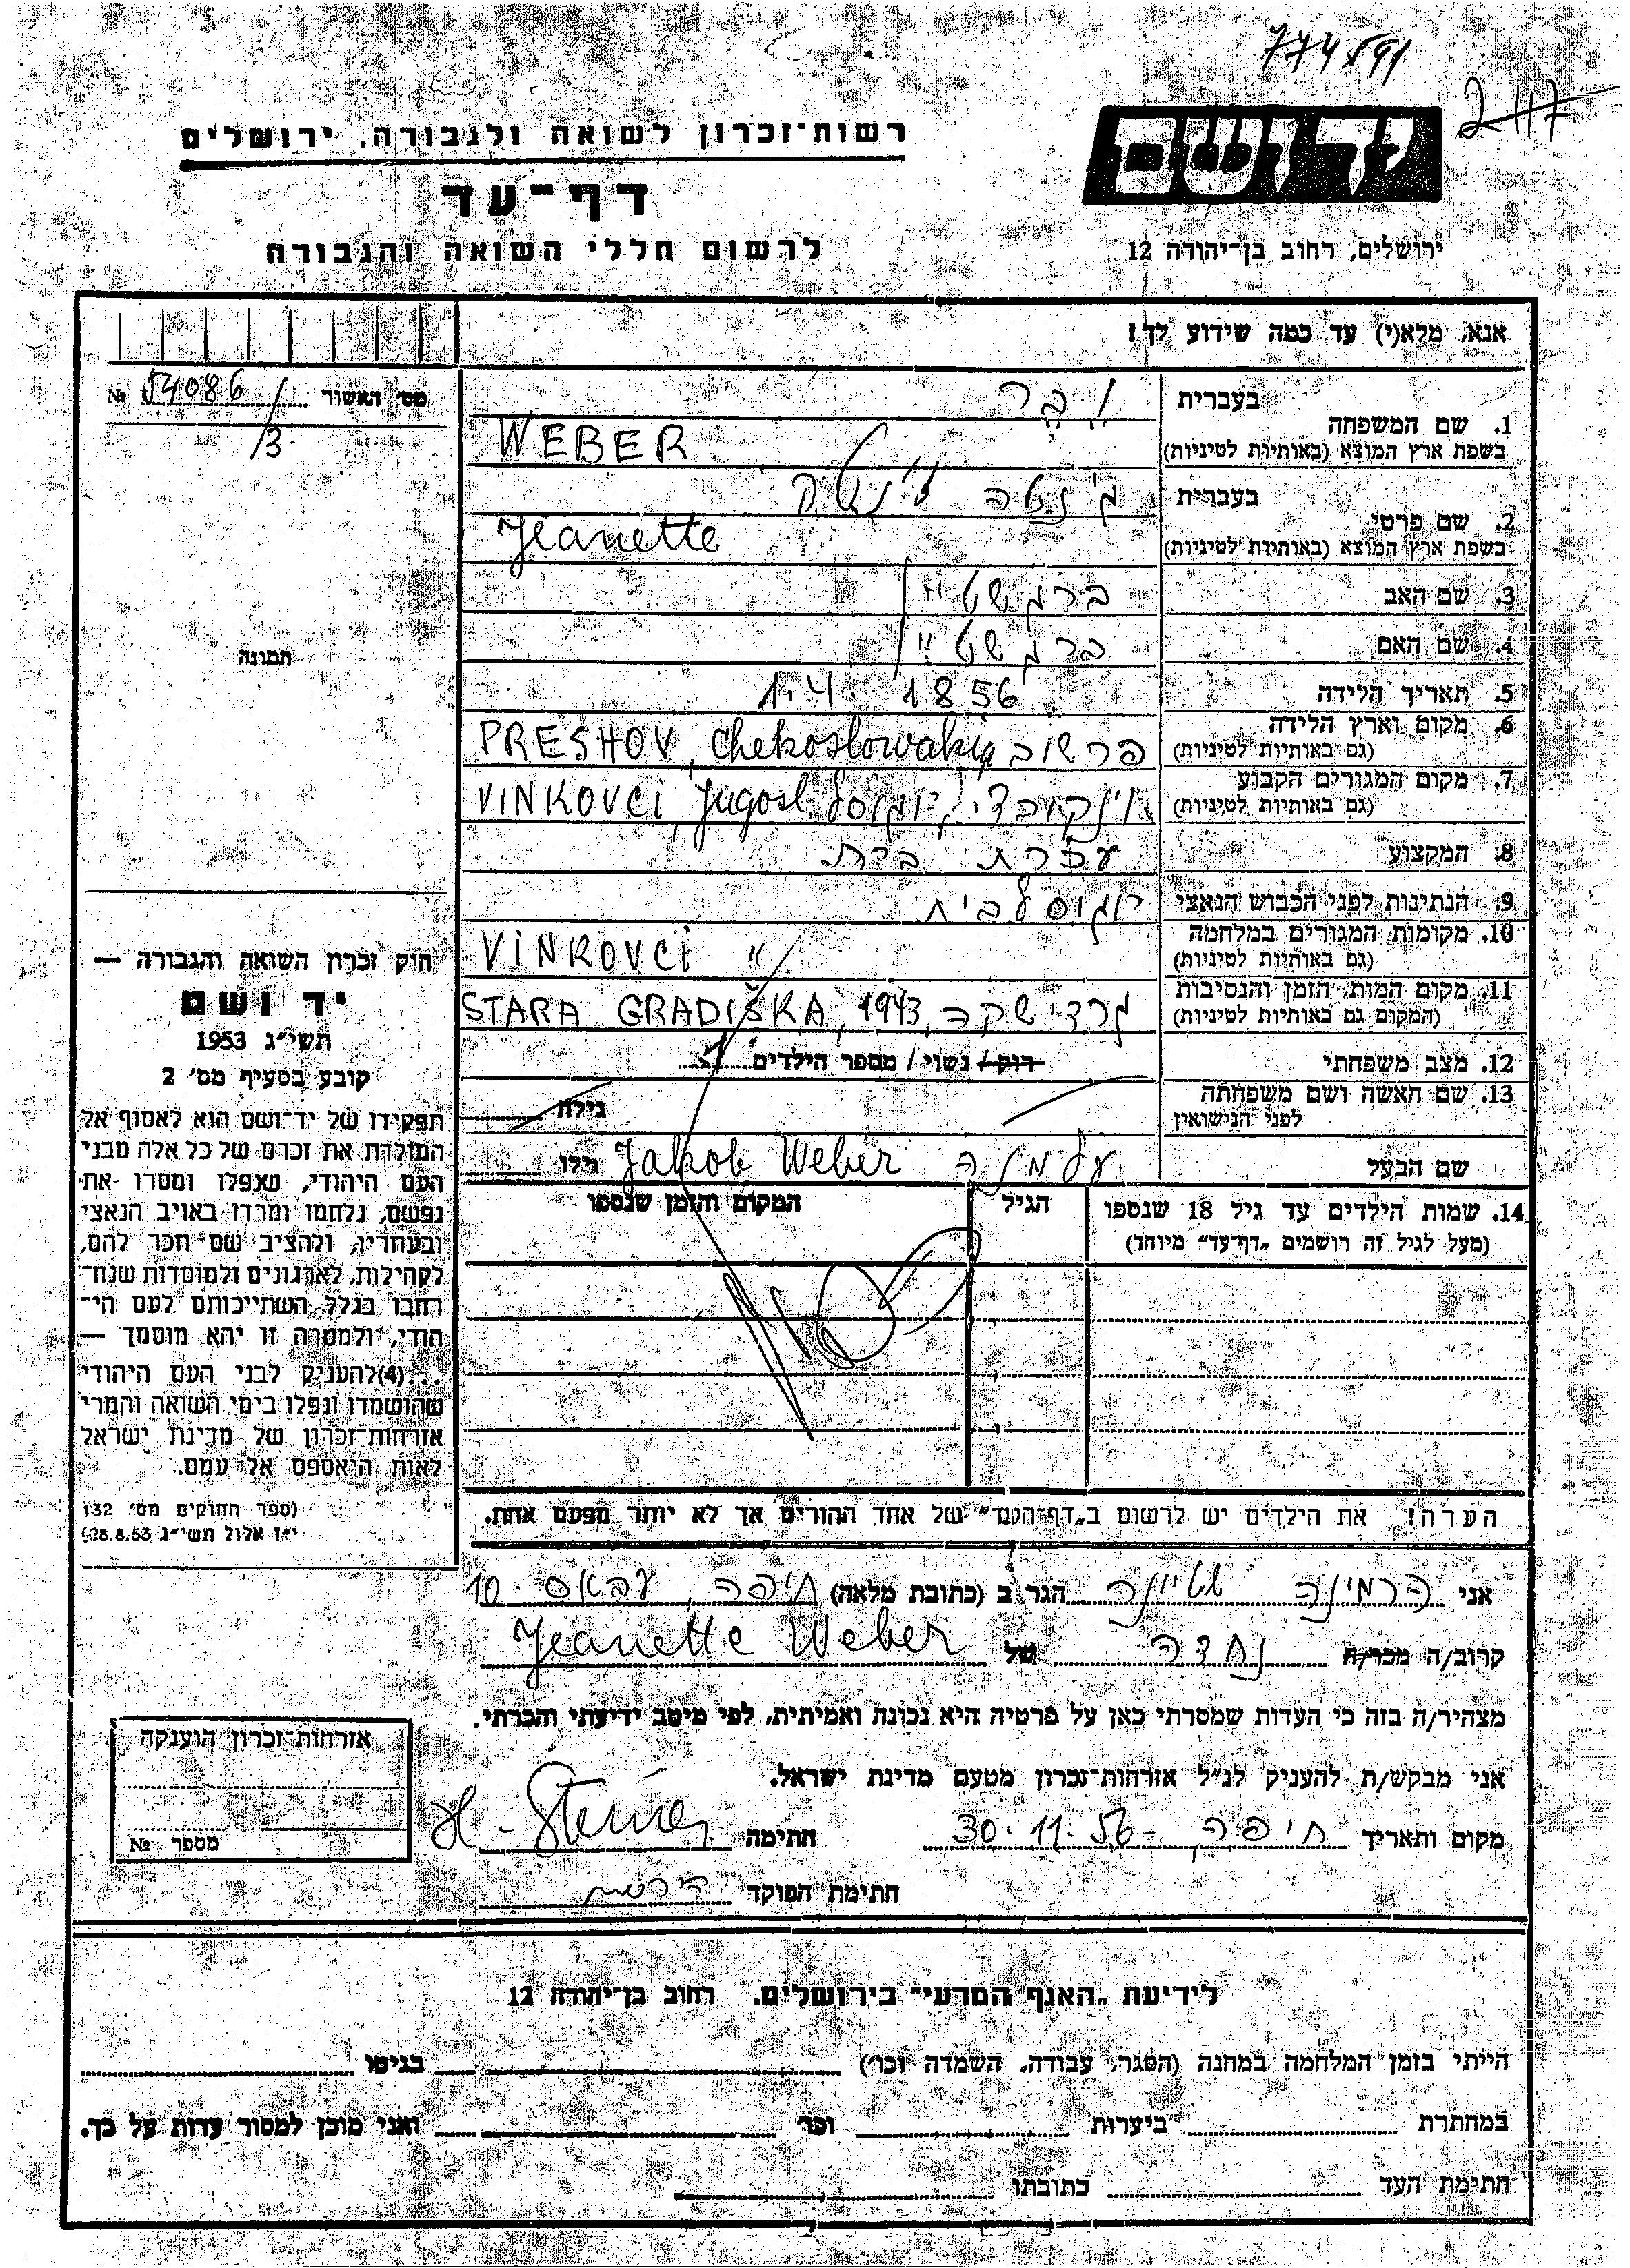 774591
247
יד ושם
רשות־זכרון לשואה ולגבורה, ירושלים
דף־עד
לרשום חללי השואה והגבורה
ירושלים, רחוב בן־יהודה 12
אנא, מלא(י) עד כמה שידוע לך!
מס׳ האשור 54086 №
/3
1. שם המשפחה
בעברית ובר
בשפת ארץ המוצא (באותיות לטיניות) WEBER
2. שם פרטי
בעברית ג׳נטה ז׳נטיקה
בשפת ארץ המוצא (באותיות לטיניות) Jeanette
3. שם האב ברגשטיין
4. שם האם ברגשטיין
5. תאריך הלידה 1.4. 1856
6. מקום וארץ הלידה
(גם באותיות לטיניות) פרשוב PRESHOV, Chekoslowakia
7. מקום המגורים הקבוע
(גם באותיות לטיניות) וינקובצי, יוגוסל VINKOVCI, Jugosl
8. המקצוע עקרת בית
9. הנתינות לפני הכבוש הנאצי יוגוסלבית
10. מקומות המגורים במלחמה
(גם באותיות לטיניות) VINKOVCI "
11. מקום המות, הזמן והנסיבות
(המקום גם באותיות לטיניות) גרדישקה, STARA GRADIŠKA, 1943
12. מצב משפחתי רוק / נשוי / מספר הילדים
13. שם האשה ושם משפחתה
לפני הנישואין גילה
שם הבעל אלמנה Jakob Weber גילו
14. שמות הילדים עד גיל 18 שנספו
(מעל לגיל זה רושמים „דף־עד״ מיוחד)
הגיל
המקום והזמן שנספו
הערה! את הילדים יש לרשום ב„דף־העד״ של אחד ההורים אך לא יותר מפעם אחת.
תמונה
חוק זכרון השואה והגבורה —
יד ושם
תשי״ג 1953
קובע בסעיף מס׳ 2
תפקידו של יד־ושם הוא לאסוף אל
המולדת את זכרם של כל אלה מבני
העם היהודי, שנפלו ומסרו את
נפשם, נלחמו ומרדו באויב הנאצי
ובעוזריו, ולהציב שם וזכר להם,
לקהילות, לארגונים ולמוסדות שנח־
רבו בגלל השתייכותם לעם הי־
הודי, ולמטרה זו יהא מוסמך —
...(4) להעניק לבני העם היהודי
שהושמדו ונפלו בימי השואה והמרי
אזרחות־זכרון של מדינת ישראל
לאות היאספם אל עמם.
(ספר החוקים מס׳ 132
י״ז אלול תשי״ג 28.8.53)
אני הרמינה שטיינר הגר ב (כתובת מלאה) חיפה, עבאס 10.
קרוב/ה מכר/ה נכדה של Jeanette Weber
מצהיר/ה בזה כי העדות שמסרתי כאן על פרטיה היא נכונה ואמיתית, לפי מיטב ידיעתי והכרתי.
אני מבקש/ת להעניק לנ״ל אזרחות־זכרון מטעם מדינת ישראל.
מקום ותאריך חיפה - 30.11.56 חתימה H. Steiner
חתימת הפוקד
אזרחות־זכרון הוענקה
מספר №
לידיעת „האגף המדעי״ בירושלים, רחוב בן־יהודה 12
הייתי בזמן המלחמה במחנה (הסגר, עבודה, השמדה וכו׳) בגיטו
במחתרת ביערות וכו׳ ואני מוכן למסור עדות על כך.
חתימת העד כתובתו